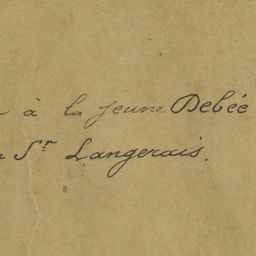 à la jeune Debée
Sr Langerais.